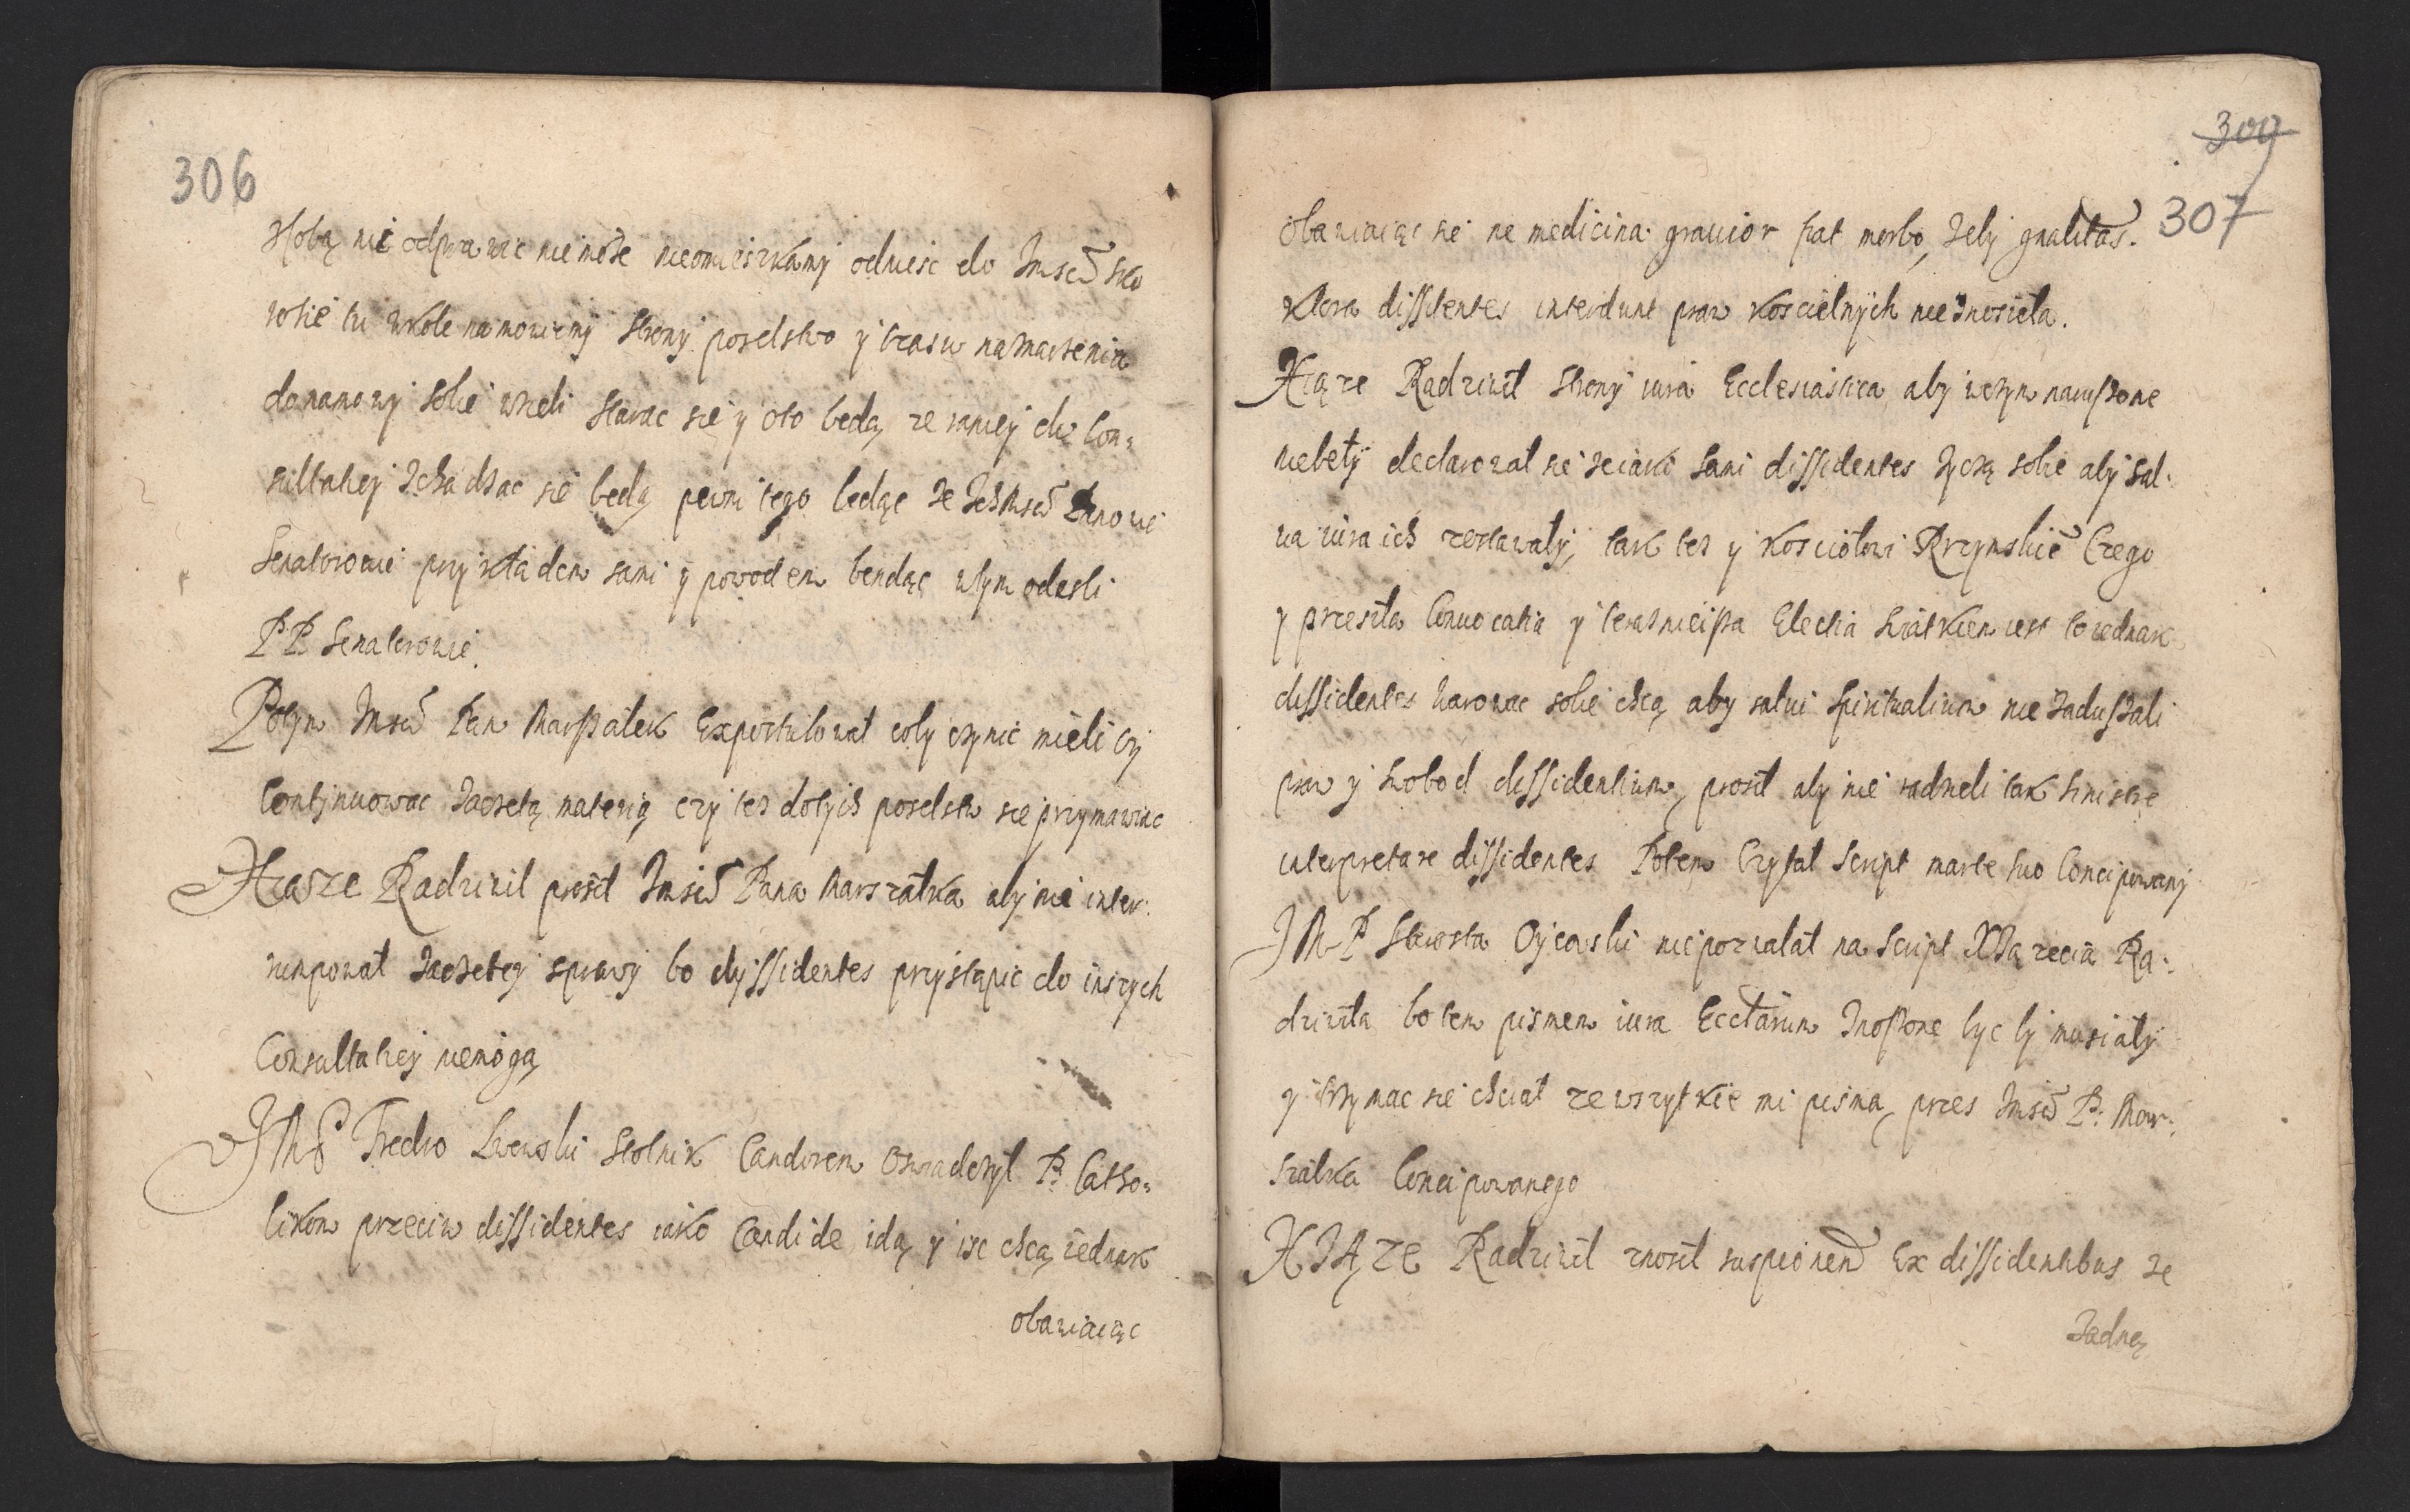 306
nic odprawic nie może nieomieszkany odniesc do Imsci sko
tu wkole namowiemy strony poselstwo y czasu naznaczenia
do namowy sobie wzieli starac sie y oto będą ze raniey do Con=
sultatiey zchadzac się będą pewni tego będąc że Ichmsci Panowie
Senatorowie przykładem sami y powodem bendąc wtym odeszli
PP. Senatorowie.
Potym Imsci Pan Marszałek Expostulował coby czynic mieli czy
Continuowac zaczętą materią czy tez do tych poselstw sie przymawiac
Xiąze Radziwił prosił Imsci Pana Marszałka aby nie inter:
rumpował zaczetey sprawy bo dyssidentes przystąpic do inszych
Consultatiey niemogą
JMP Fredro Lwowski Stolnik Candorem oswiadczył P. Catho=
likow przeciw dissidentes iako Candide idą y isc chcą iednak
obawiaiąc
309
307
obawiaiąc sie ne medicina gravior fiat morbo, żeby
ktora dissidentes intendunt praw koscielnych nie znosiła.
Xiąze Radziwił strony iura Ecclesiastica aby wczym naruszone
niebeły declarował sie ze iako sami dissidentes życzą sobie aby sal:
va iura ich zostawały, tak tez y kosciołowi Rzymskie Czego
y przeszła Convocatia y teraznieisza Electia swiatkiem iest to iednak
dissidentes warowac sobie chcą aby salvi spiritualium nie zaduszali
praw y swobod dissidentium, prosił aby nie radzieli tak sinistre
interpretare dissidentes Potem Czytał Script marte suo Concipowany
JMP Starosta Oycowski nie pozwalał na Script XBa zecia Ra:
dziwiła bo tem pismem iura Ecclarum znoszone byc by musiały
y trzymac sie chciał ze wszytkie mi pisma, przes Imsci P. Mar:
szałka Concipowanego
XIĄZE Radziwił znosił suspicionem Ex dissidentibus ze
Zadną